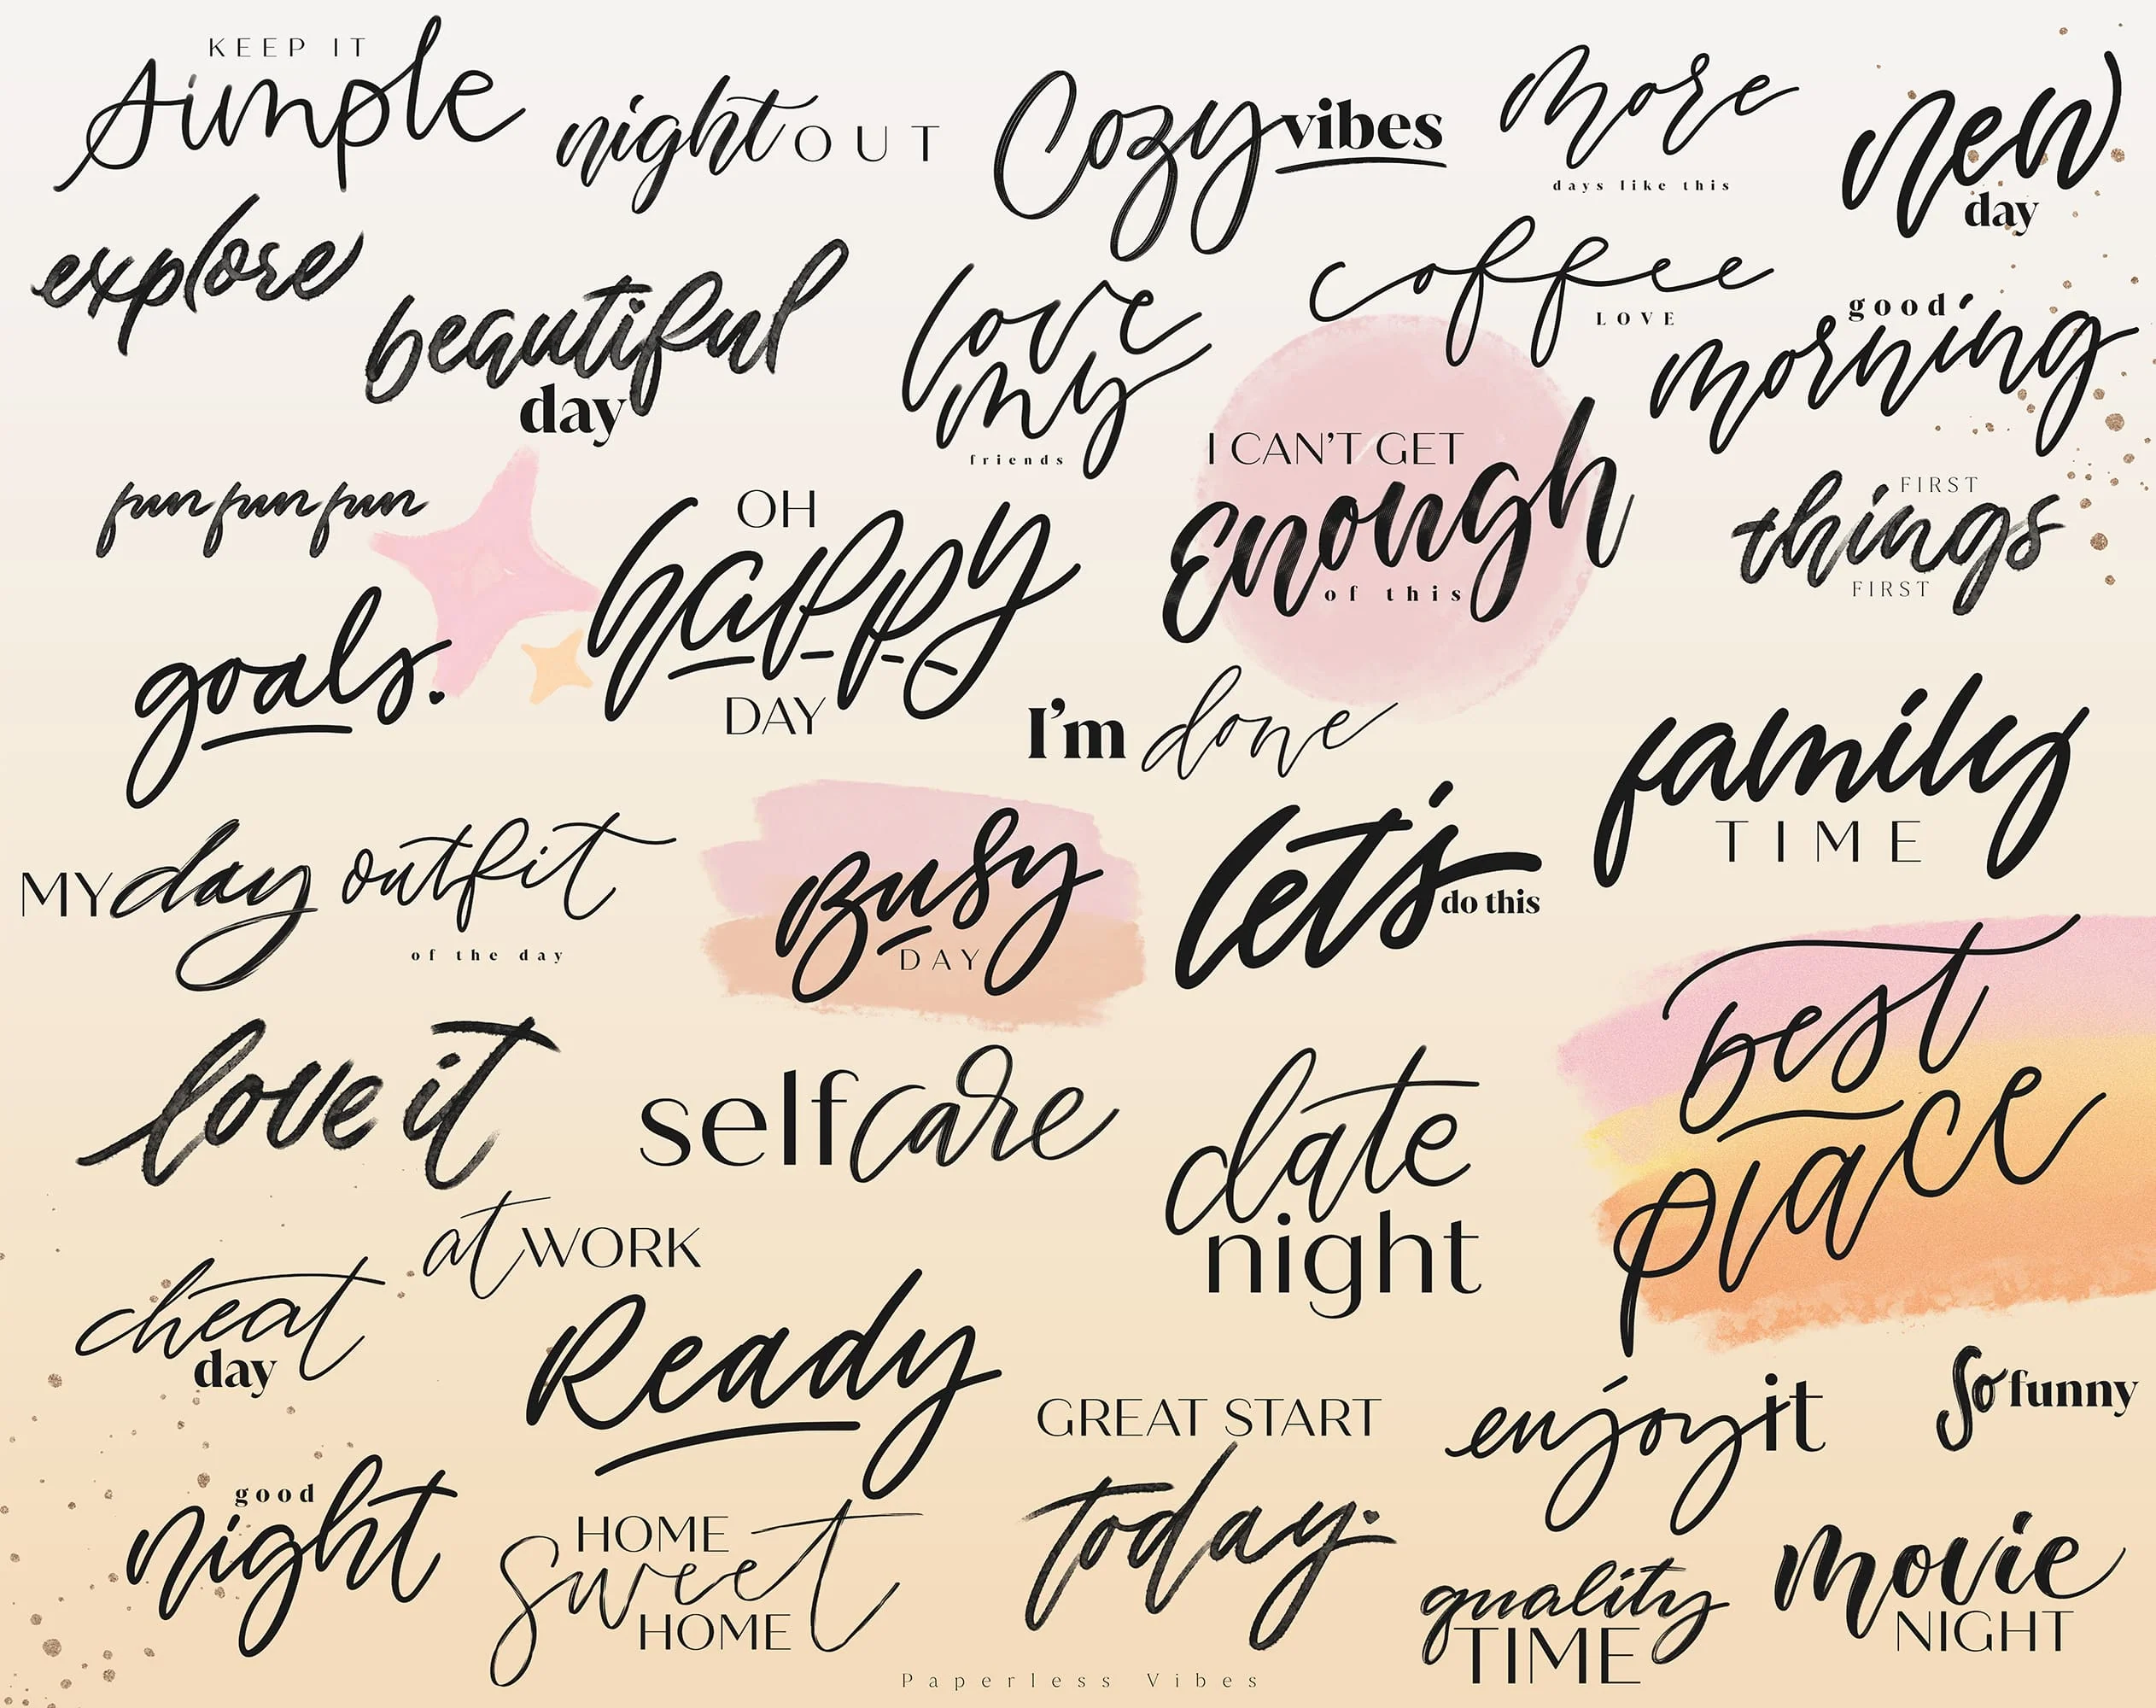 KEEP IT
simple
night OUT
Cozy vibes
more
days like this
new
day
explore
beautiful
day
love
my
friends
coffee
LOVE
good
morning
fun fun fun
OH
happy
DAY
I CAN'T GET
Enough
of this
FIRST
things
FIRST
goals.
I'm done
family
TIME
MY day outfit
of the day
Busy
DAY
let's
do this
best
place
love it
self care
date
night
at WORK
cheat
day
Ready
GREAT START
today.
enjoy it
So funny
good
night
HOME
sweet
HOME
quality
TIME
movie
NIGHT
Paperless Vibes